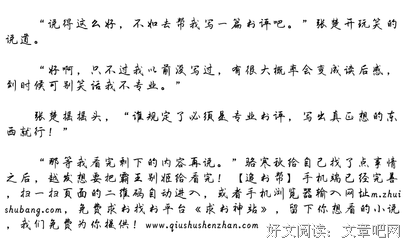 “说得这么好，不如去帮我写一篇书评吧。”张楚开玩笑的
说道。
“好啊，只不过我以前没写过，有很大概率会变成读后感，
到时候可别笑话我不专业。”
张楚摇摇头，“谁规定了必须是专业书评，写出真正想的东
西就行！”
“那等我看完剩下的内容再说。”骆寒秋给自己找了点事情
之后，越发想要把霸王别姬给看完！【追书帮】手机端已经完善，
扫一扫页面的二维码自动进入，或者手机浏览器输入网址m.zhui
shubang.com，免费求书找书平台《求书神站》，留下你想看的小说
，我们免费为你提供！www.qiushushenzhan.com
好文阅读：文章吧网